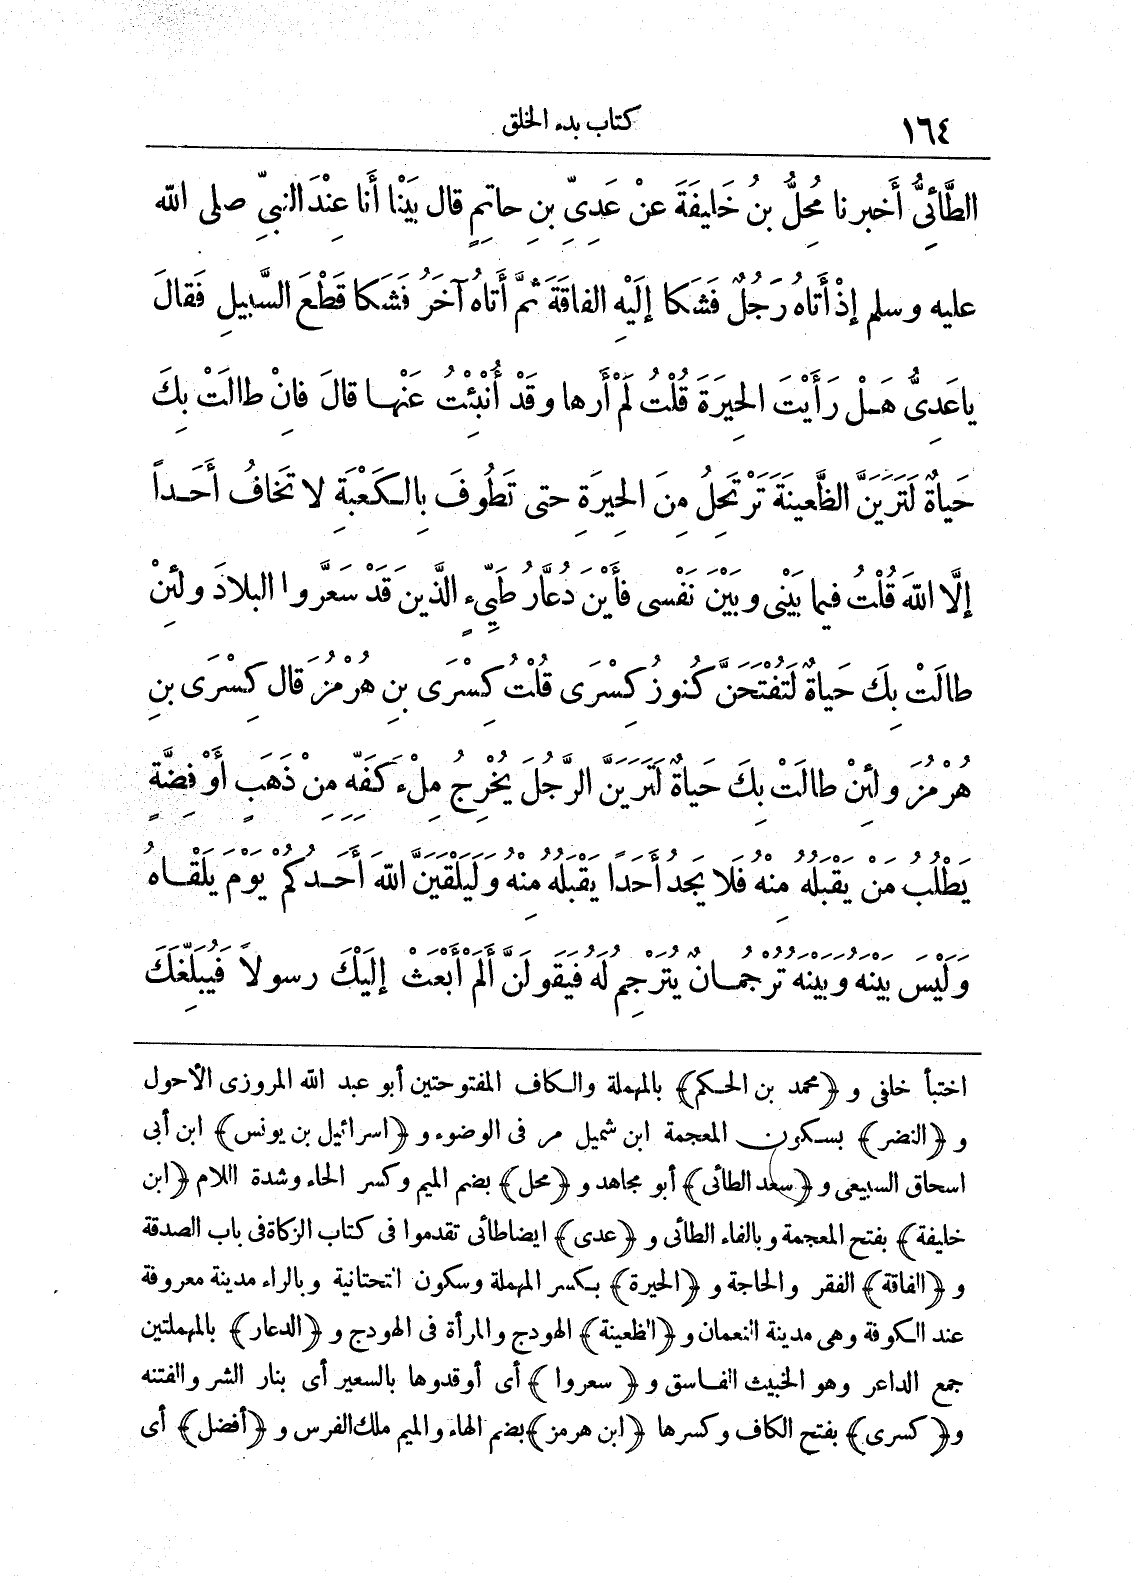 ١٦٤
كتاب بدء الخلق
الطَّائِيُّ أَخبرنا مُحِلُّ بنُ خَلِيفَةَ عنْ عَدِيِّ بنِ حاتِمٍ قال بَيْنا أَنا عِنْدَ النبيِّ صلى الله
عليه وسلم إذْ أَتاهُ رَجُلٌ فَشَكا إلَيْهِ الفاقَةَ ثُمَّ أَتاهُ آخَرُ فَشَكا قَطْعَ السَّبِيلِ فَقالَ
ياعَدِىُّ هَلْ رَأَيْتَ الحِيرَةَ قُلْتُ لَمْ أَرها وقَدْ أُنْبِئْتُ عَنْها قالَ فانْ طالَتْ بِكَ
حَياةٌ لَتَرَيَنَّ الظَّعِينَةَ تَرْتَحِلُ مِنَ الحِيرَةِ حتى تَطُوفَ بِالكَعْبَةِ لا تَخافُ أَحَداً
إلَّا اللهَ قُلْتُ فيما بَيْنى وبَيْنَ نَفْسى فأَيْنَ دُعَّارُ طَيِّىءٍ الذَّينَ قَدْ سَعَّروا البلادَ ولئِنْ
طالَتْ بِكَ حَياةٌ لَتُفْتَحَنَّ كُنوزُ كِسْرَى قُلْتُ كِسْرَى بنِ هُرْمُزَ قال كِسْرَى بنِ
هُرْمُزَ ولئِنْ طالَتْ بِكَ حَياةٌ لَتَرَيَنَّ الرَّجُلَ يُخْرِجُ مِلْءَ كَفِّهِ مِنْ ذَهَبٍ أَوْ فِضَّةٍ
يَطْلُبُ مَنْ يَقْبَلُهُ مِنْهُ فَلا يَجِدُ أَحَداً يَقْبَلُهُ مِنْهُ ولَيَلْقَيَنَّ اللهَ أَحَدُكُمْ يَوْمَ يَلْقَاهُ
وَلَيْسَ بَيْنَهُ وبَيْنَهُ تُرْجُمانٌ يُتَرْجِمُ لَهُ فَيَقُولَنَّ أَلَمْ أَبْعَثْ إلَيْكَ رسولاً فَيُبَلِّغَكَ
اختبأ خلفى و ﴿محمد بن الحكم﴾ بالمهملة والكاف المفتوحتين أبو عبد الله المروزى الأحول
و ﴿النضر﴾ بسكون المعجمة ابن شميل مر فى الوضوء و ﴿اسرائيل بن يونس﴾ ابن أبى
اسحاق السبيعى و ﴿سعد الطائى﴾ أبو مجاهد و ﴿محل﴾ بضم الميم وكسر الحاء وشدة اللام ﴿ابن
خليفة﴾ بفتح المعجمة وبالفاء الطائى و ﴿عدى﴾ ايضاطائى تقدموا فى كتاب الزكاة فى باب الصدقة
و ﴿الفاقة﴾ الفقر والحاجة و ﴿الحيرة﴾ بكسر المهملة وسكون التحتانية وبالراء مدينة معروفة
عند الكوفة وهى مدينة النعمان و ﴿الظعينة﴾ الهودج والمرأة فى الهودج و ﴿الدعار﴾ بالمهملتين
جمع الداعر وهو الخبيث الفاسق و ﴿سعروا﴾ أى أوقدوها بالسعير أى بنار الشر والفتنه
و﴿كسرى﴾ بفتح الكاف وكسرها ﴿ابن هرمز﴾ بضم الهاء والميم ملك الفرس و ﴿أفضل﴾ أى